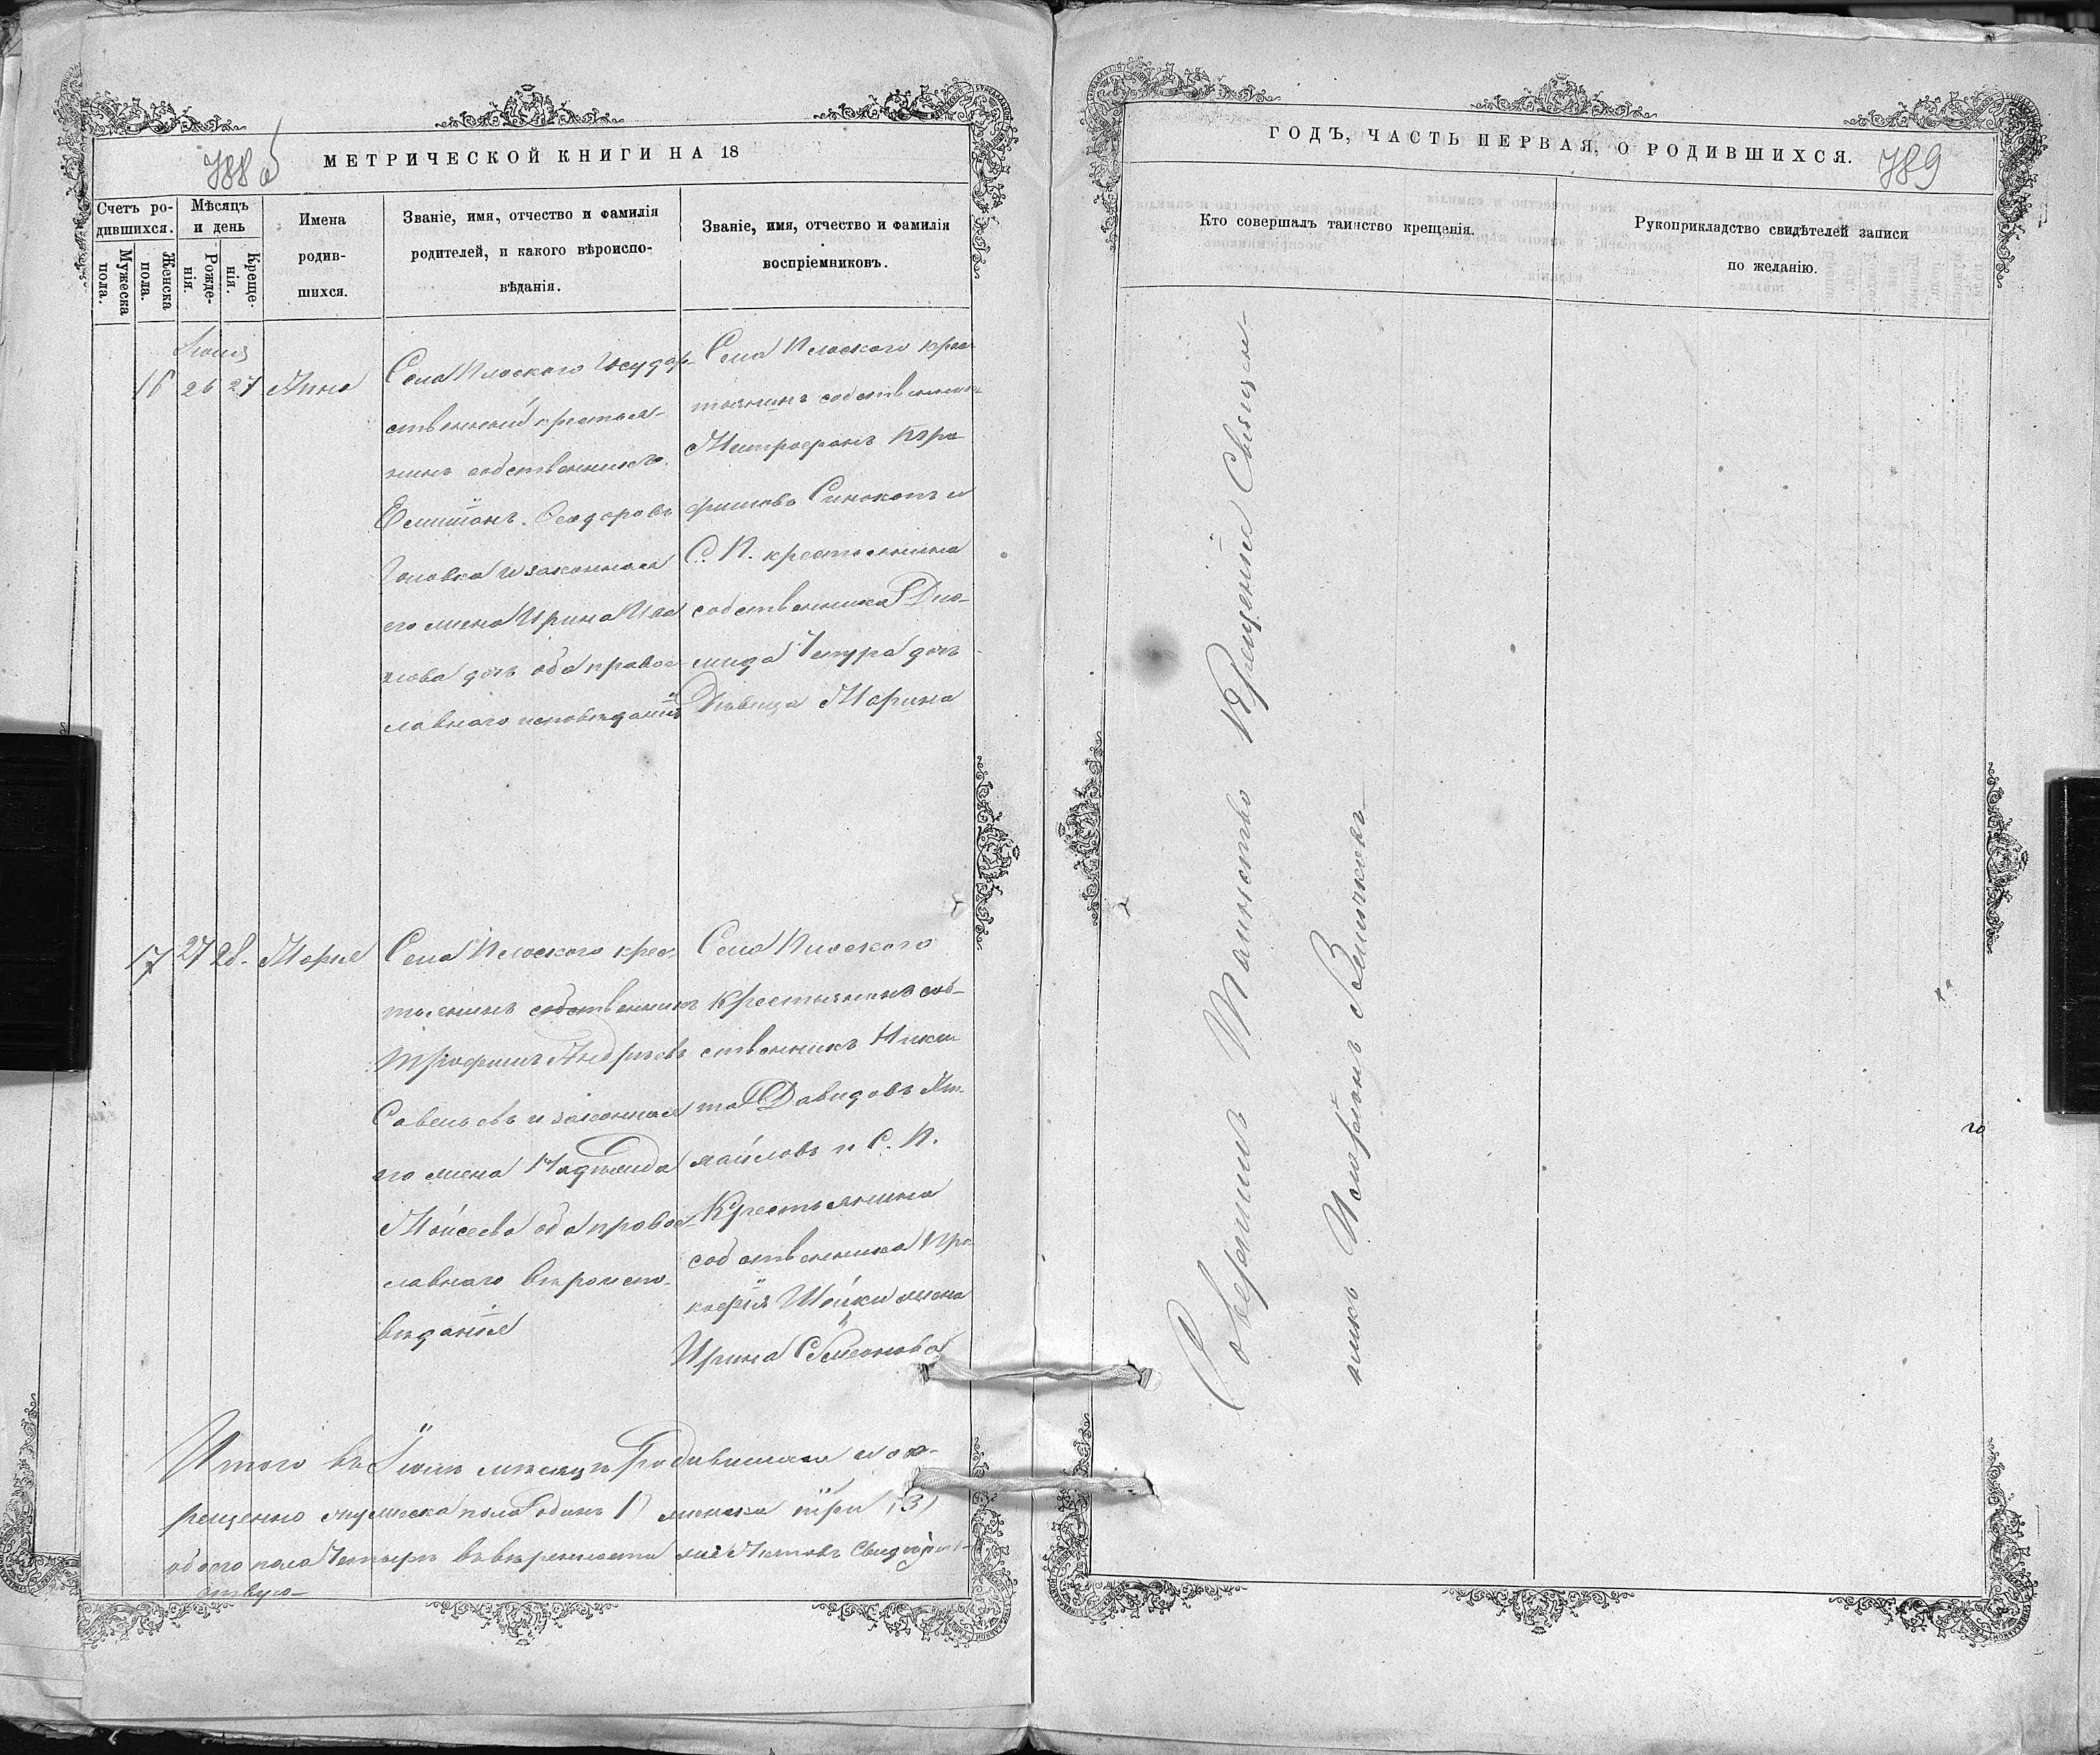 788 об
МЕТРИЧЕСКОЙ КНИГИ НА 18
Счетъ ро-
дившихся.
Мужеска
пола.
Женска
пола.
Мѣсяцъ
и день
Рожде-
нія.
Креще-
нія.
Имена
родив-
шихся.
Званіе, имя, отчество и фамилія
родителей, и какого вѣроиспо-
вѣданія.
Званіе, имя, отчество и фамилія
воспріемниковъ.
16 26 27 Анна
Села Плоского Государ-
ственный крестья-
нинъ собственникъ
Емиліанъ Феодоровъ
Головка и законная
его жена Ирина Ива
нова дочь оба правос
лавнаго исповѣданія
Села Плоского крес
тьянинъ собственникъ
Митрофанъ
Синокопъ и
С. П. крестьянина
собственника Дио-
мида дочь
Дѣвица Марина
17 27 28. Марія
Села Плоского крес
тьянинъ собственникъ
Трофимъ Андреевъ
Савельевъ и законная
его жена Надѣжда
Мойсеева оба правос
лавнаго вѣроиспо-
вѣданія
Села Плоского
Крестьянинъ соб-
ственникъ Ники
та Давидовъ
и С. П.
Крестьянина
собственника Про-
кофія Шейки жена
Ирина Семеонова
Итого въ Іюлѣ мѣсяцѣ Родившихся и ок-
рещенно мужеска пола одинъ 1) женска три (3)
обоего пола Четыри въ вѣрности Актовъ Свидѣтель-
ствую
ГОДЪ, ЧАСТЬ ПЕРВАЯ, О РОДИВШИХСЯ.
789
Кто совершалъ таинство крещенія.
Рукоприкладство свидѣтелей записи
по желанію.
Совершилъ Таинство Крещенія Священ-
никъ Величковъ